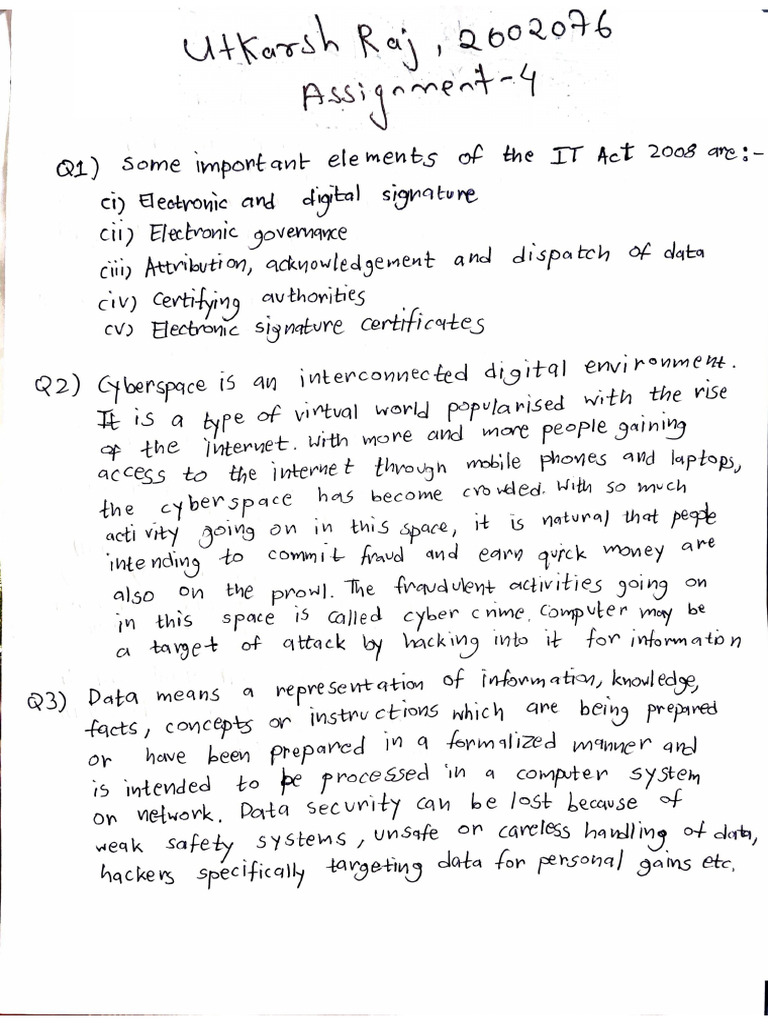 Utkarsh Raj, 2602076
Assignment-4
Q1) Some important elements of the IT Act 2008 are:-
(i) Electronic and digital signature
(ii) Electronic governance
(iii) Attribution, acknowledgement and dispatch of data
(iv) Certifying authorities
(v) Electronic signature certificates
Q2) Cyberspace is an interconnected digital environment.
It is a type of virtual world popularised with the rise
of the internet. With more and more people gaining
access to the internet through mobile phones and laptops,
the cyberspace has become crowded. With so much
activity going on in this space, it is natural that people
intending to commit fraud and earn quick money are
also on the prowl. The fraudulent activities going on
in this space is called cyber crime. Computer may be
a target of attack by hacking into it for information
Q3) Data means a representation of information, knowledge,
facts, concepts or instructions which are being prepared
or have been prepared in a formalized manner and
is intended to be processed in a computer system
or network. Data security can be lost because of
weak safety systems, unsafe or careless handling of data,
hackers specifically targeting data for personal gains etc.